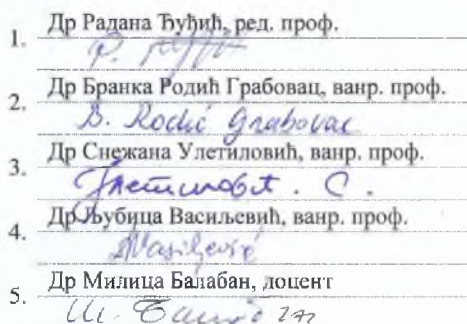 1. Др Радана Ђуђић, ред. проф.
2. Др Бранка Родић Грабовац, ванр. проф.
B. Rodić Grabovac
3. Др Снежана Улетиловић, ванр. проф.
4. Др Љубица Васиљевић, ванр. проф.
Vasiljević
5. Др Милица Балабан, доцент